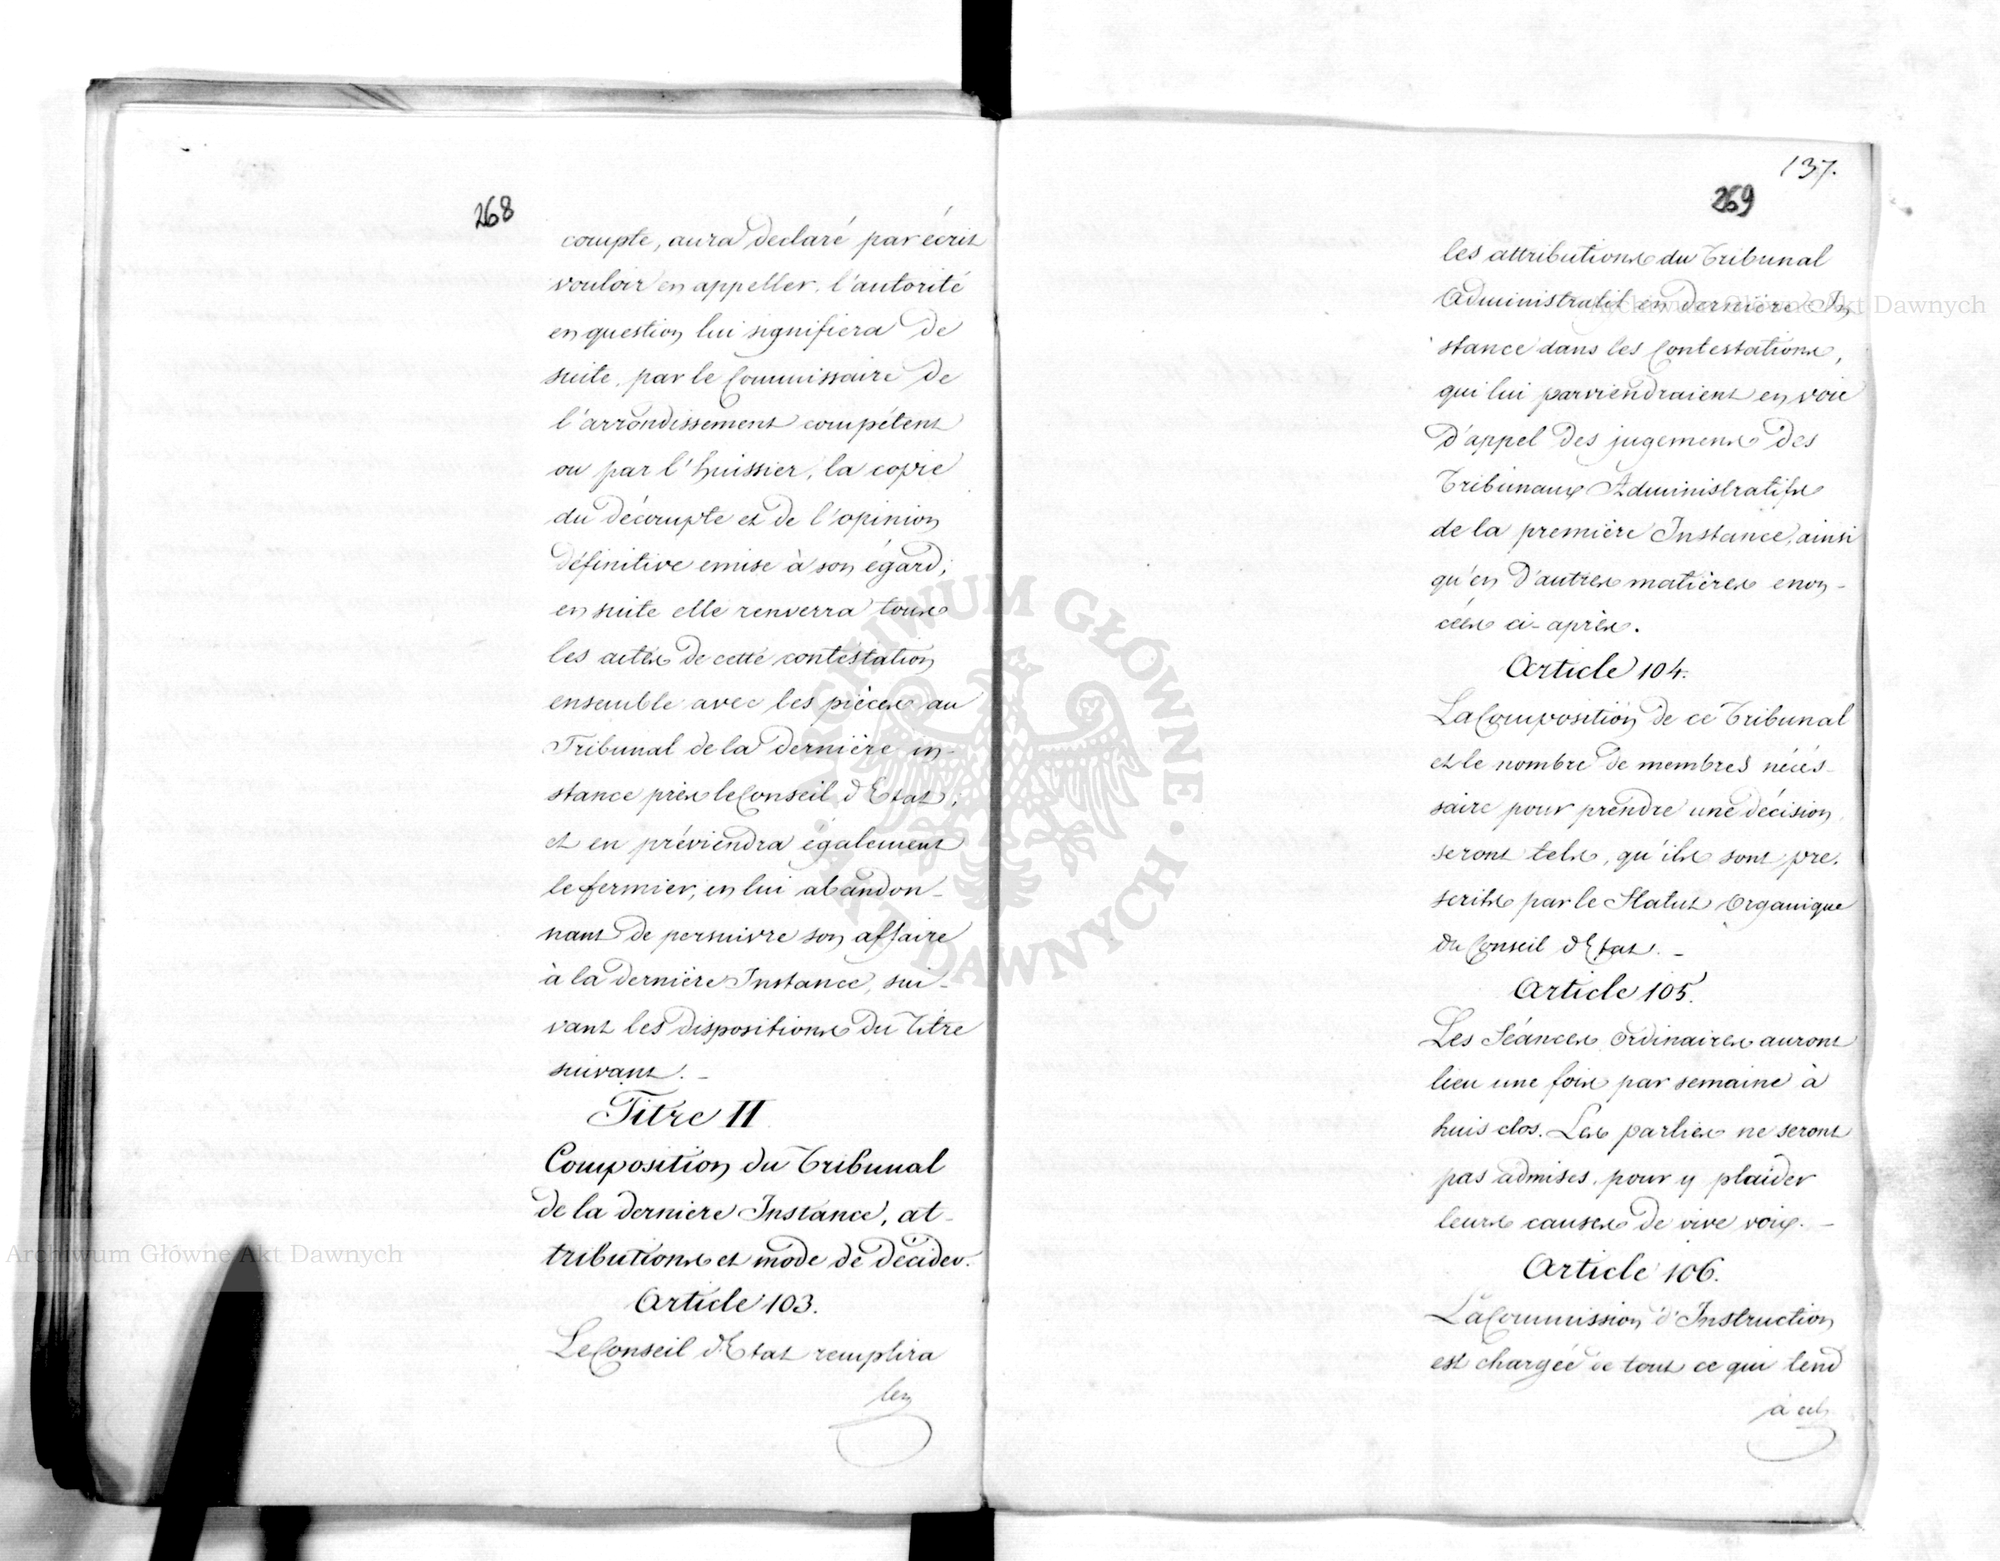 268
compte, aura declaré par écrit
vouloir en appeller, l'autorité
en question lui signifiera de
suite, par le Commissaire de
l'arrondissement compétent
ou par l'huissier, la copie
du décompte et de l'opinion
définitive emise à son égard;
en suite elle renverra tous
les actes de cette contestation
ensemble avec les pièces au
Tribunal de la dernière in-
stance près le Conseil d'Etat;
et en préviendra également
le fermier, en lui abandon-
nant de persuivre son affaire
à la dernière Instance, sui-
vant les dispositions du titre
suivant. -
Titre II
Composition du Tribunal
de la derniere Instance, at-
tributions et mode de décider.
Article 103.
Le Conseil d'Etat remplira
les
137.
269
les attributions du Tribunal
Administratif en dernière In
stance dans les Contestations,
qui lui parviendraient en voie
d'appel des jugemens des
Tribunaux Administratifs
de la première Instance, ainsi
qu'en d'autres matières enon-
cées ci-après.
Article 104.
La Composition de ce Tribunal
et le nombre de membres nécés-
saire pour prendre une décision,
seront tels, qu'ils sont pre-
scrits par le Statut Organique
du Conseil d'Etat. -
Article 105.
Les Séances Ordinaires auront
lieu une fois par semaine à
huis clos. Les parties ne seront
pas admises, pour y plaider
leurs causes de vive voix. -
Article 106.
La Commission d'Instruction
est chargée de tout ce qui tend
à
ARCHIWUM GŁÓWNE AKT DAWNYCH
Archiwum Główne Akt Dawnych
Archiwum Główne Akt Dawnych